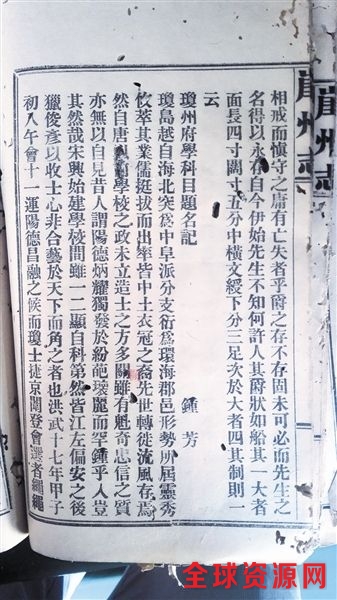 崖州志
相戒而慎守之庸有亡失者乎爵之存不存固未可必而先生之
名得以永存自今伊始先生不知何許人其爵狀如船其一大者
面長四寸闊寸五分中橫文綬下分三足次於大者四其制則一
云
瓊州府學科目題名記
鍾芳
瓊島越自海北突為中阜派分支衍為環海郡邑形勢所屆靈秀
攸萃其業儒挺拔而出率皆中土衣冠之裔先世轉徙流風存焉
然自唐學校之政未立造士之方多闕雖有魁奇忠信之質
亦無以自見昔人謂陽德炳耀獨發於紛葩瓌麗而罕鍾乎人豈
其然哉宋興始建學校間雖一二顯自科第然皆江左偏安之後
獵俊彥以收士心非合藝於天下而角之者也洪武十七年甲子
初八午會十一運陽德昌融之候而瓊士捷京闈登會選者繩繩
崖州志
全球资源网